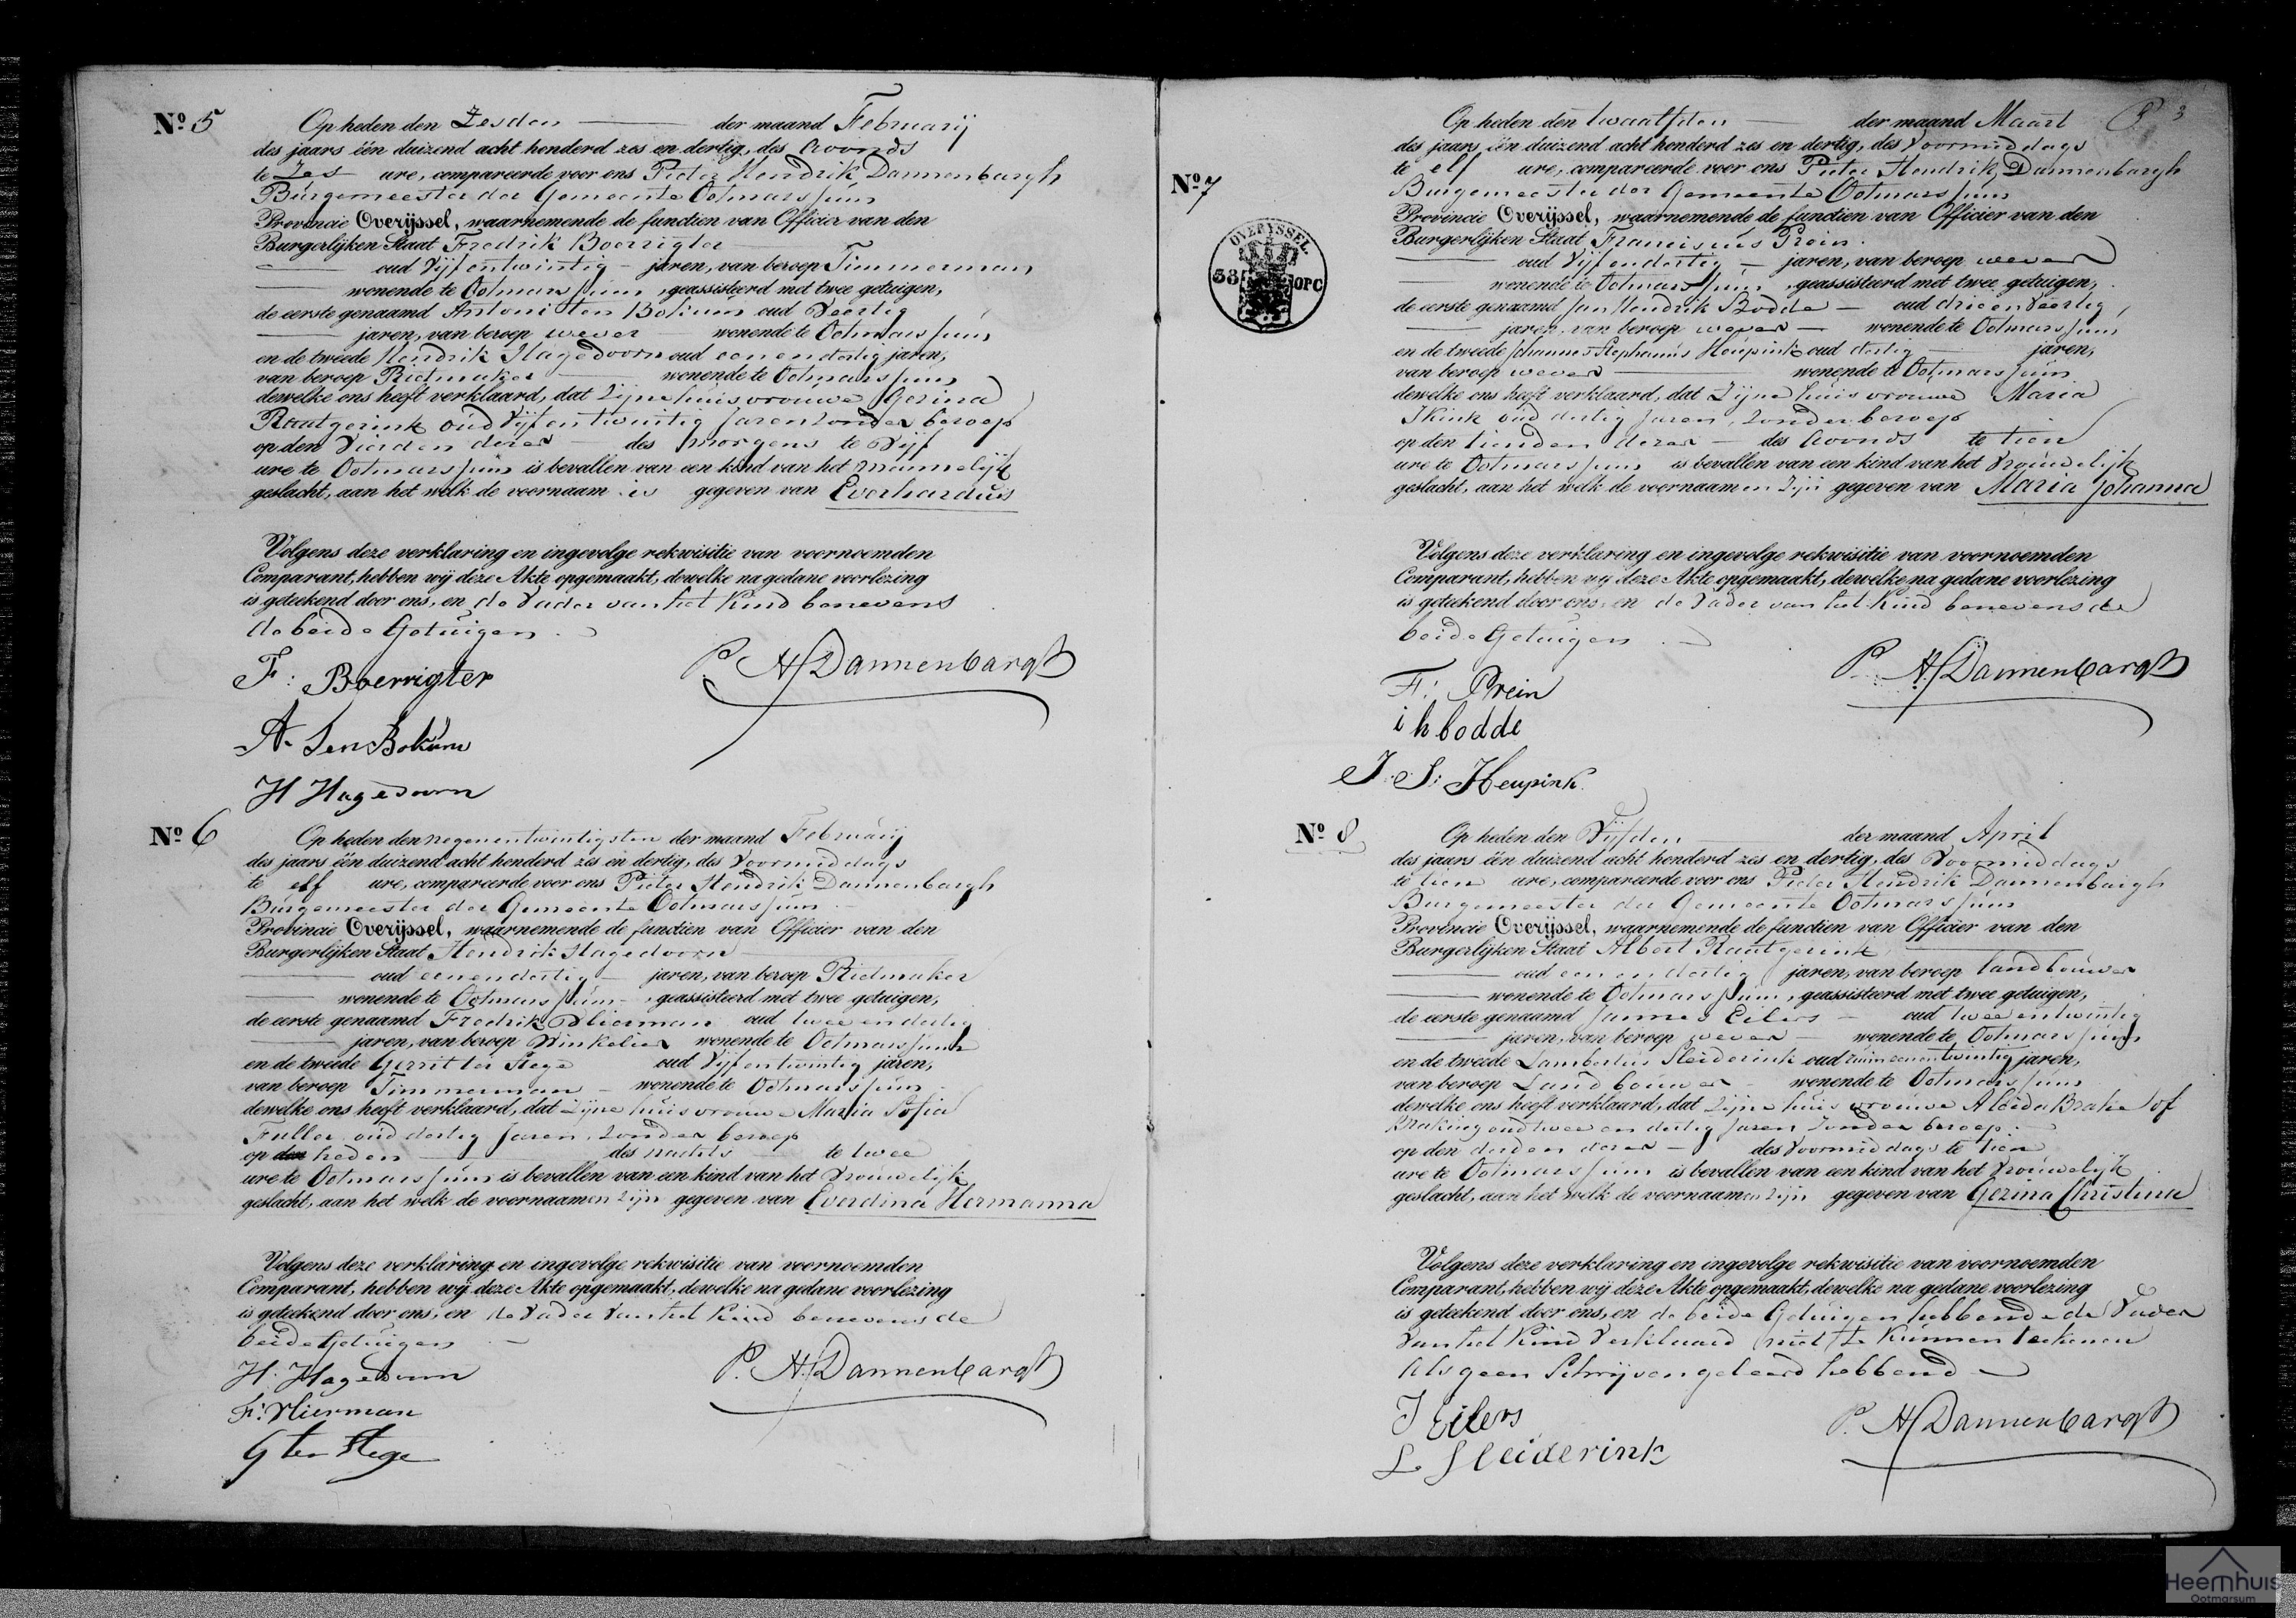 Nº 5
Op heden den Zesden der maand Februarij
des jaars één duizend acht honderd zes en dertig, des Avonds
te Zes ure, compareerde voor ons Pieter Hendrik Dannenbargh
Burgemeester der Gemeente Ootmarssum
Provincie Overijssel, waarnemende de functien van Officier van den
Burgerlijken Staat Fredrik Boerrigter
oud Vijfentwintig jaren, van beroep Timmerman
wonende te Ootmarssum, geassisteerd met twee getuigen,
de eerste genaamd Antoni ten Bokum oud Veertig
jaren, van beroep wever wonende te Ootmarssum
en de tweede Hendrik Hagedoorn oud eenendertig jaren,
van beroep Rietmaker wonende te Ootmarssum
dewelke ons heeft verklaard, dat Zijne huisvrouwe Gezina
Raatgerink oud Vijfentwintig Jaren zonder beroep
op den Vierden dezer des morgens te Vijf
ure te Ootmarssum is bevallen van een kind van het mannelijk
geslacht, aan het welk de voornaam is gegeven van Everhardus
Volgens deze verklaring en ingevolge rekwisitie van voornoemden
Comparant, hebben wij deze Akte opgemaakt, dewelke na gedane voorlezing
is geteekend door ons, en de Vader van het Kind benevens
de beide Getuigen.
F: Boerrigter
P. H. Dannenbargh
A. Ten Bokum
H Hagedoorn
Nº 6
Op heden den negenentwintigsten der maand Februarij
des jaars één duizend acht honderd zes en dertig, des Voormiddags
te elf ure, compareerde voor ons Pieter Hendrik Dannenbargh
Burgemeester der Gemeente Ootmarssum
Provincie Overijssel, waarnemende de functien van Officier van den
Burgerlijken Staat Hendrik Hagedoorn
oud eenendertig jaren, van beroep Rietmaker
wonende te Ootmarssum, geassisteerd met twee getuigen,
de eerste genaamd Fredrik Vlierman oud twee en dertig
jaren, van beroep Winkelier wonende te Ootmarssum
en de tweede Gerrit ter Stege oud Vijfentwintig jaren,
van beroep Timmerman wonende te Ootmarssum
dewelke ons heeft verklaard, dat Zijne huisvrouwe Maria Sofia
Fuller oud dertig Jaren, zonder beroep
op den heden des nachts te twee
ure te Ootmarssum is bevallen van een kind van het Vrouwelijk
geslacht, aan het welk de voornaamen zijn gegeven van Everdina Hermanna
Volgens deze verklaring en ingevolge rekwisitie van voornoemden
Comparant, hebben wij deze Akte opgemaakt, dewelke na gedane voorlezing
is geteekend door ons, en de Vader van het Kind benevens de
beide Getuigen
H. Hagedoorn
P. H. Dannenbargh
F: Vlierman
G ter Stege
3
Nº 7
OVERYSSEL.
38 OPC
Op heden den twaalfden der maand Maart
des jaars één duizend acht honderd zes en dertig, des Voormiddags
te elf ure, compareerde voor ons Pieter Hendrik Dannenbargh
Burgemeester der Gemeente Ootmarssum
Provincie Overijssel, waarnemende de functien van Officier van den
Burgerlijken Staat Franciscus Prein
oud Vijfendertig jaren, van beroep wever
wonende te Ootmarssum, geassisteerd met twee getuigen,
de eerste genaamd Jan Hendrik Bodde oud drieenveertig
jaren, van beroep wever wonende te Ootmarssum
en de tweede Johannes Stephanus Heupink oud dertig jaren,
van beroep wever wonende te Ootmarssum
dewelke ons heeft verklaard, dat Zijne huisvrouwe Maria
Ikink oud dertig Jaren, zonder beroep
op den tienden dezer des Avonds te tien
ure te Ootmarssum is bevallen van een kind van het Vrouwelijk
geslacht, aan het welk de voornaamen zijn gegeven van Maria Johanna
Volgens deze verklaring en ingevolge rekwisitie van voornoemden
Comparant, hebben wij deze Akte opgemaakt, dewelke na gedane voorlezing
is geteekend door ons, en de Vader van het Kind benevens de
beide Getuigen.
F: Prein
P. H. Dannenbargh
i h bodde
J: S: Heupink
Nº 8
Op heden den Vijfden der maand April
des jaars één duizend acht honderd zes en dertig, des Voormiddags
te tien ure, compareerde voor ons Pieter Hendrik Dannenbargh
Burgemeester der Gemeente Ootmarssum
Provincie Overijssel, waarnemende de functien van Officier van den
Burgerlijken Staat Albert Raatgerink
oud een en dertig jaren, van beroep landbouwer
wonende te Ootmarssum, geassisteerd met twee getuigen,
de eerste genaamd Jannes Eilers oud tweeentwintig
jaren, van beroep wever wonende te Ootmarssum
en de tweede Lambertus Sleiderink oud ruim eenentwintig jaren,
van beroep Landbouwer wonende te Ootmarssum
dewelke ons heeft verklaard, dat Zijne huisvrouwe Aleida Brake of
Braking oud twee en dertig Jaren Zonder beroep
op den derden dezer des Voormiddags te tien
ure te Ootmarssum is bevallen van een kind van het Vrouwelijk
geslacht, aan het welk de voornaamen zijn gegeven van Gezina Christina
Volgens deze verklaring en ingevolge rekwisitie van voornoemden
Comparant, hebben wij deze Akte opgemaakt, dewelke na gedane voorlezing
is geteekend door ons, en de beide Getuigen hebbende de Vader
van het Kind Verklaard niet te kunnen teekenen
als geen Schrijven geleerd hebbend
J Eilers
P. H. Dannenbargh
L Sleiderink
Heemhuis
Ootmarsum